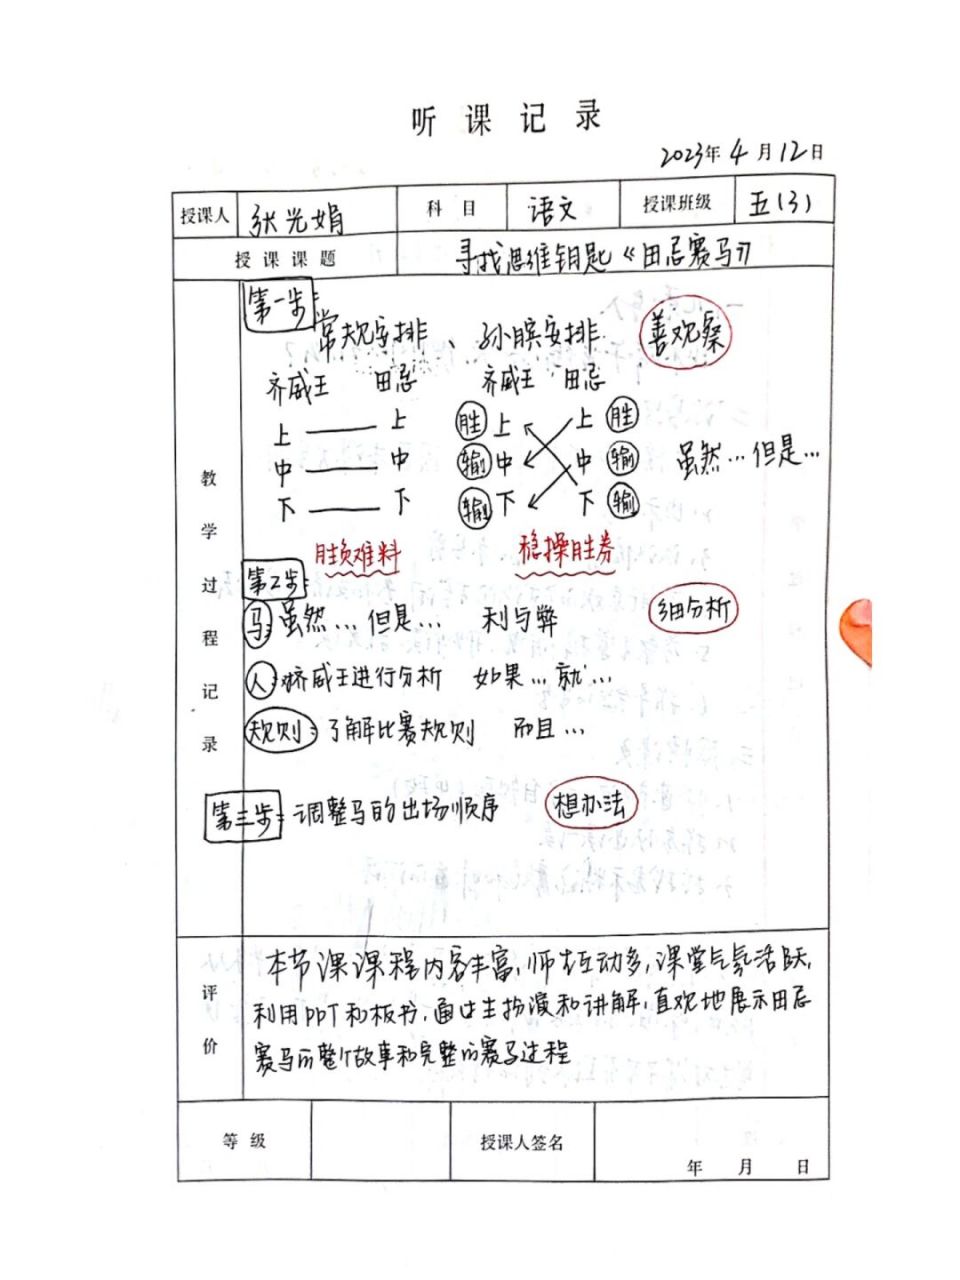 听课记录
2023年4月12日
授课人 张光娟 科目 语文 授课班级 五(3)
授课课题 寻找思维钥匙《田忌赛马》
教学过程记录
第一步:
常规安排、孙膑安排 善观察
齐威王 田忌 齐威王 田忌
上 上 胜 上 上 胜
中 中 输 中 中 输 虽然…但是…
下 下 输 下 下 输
胜负难料 稳操胜券
第2步:
马:虽然…但是… 利与弊 细分析
人:对齐威王进行分析 如果…就…
规则:了解比赛规则 而且…
第三步:调整马的出场顺序 想办法
评价
本节课课程内容丰富,师生互动多,课堂气氛活跃,
利用PPT和板书,通过生扮演和讲解,直观地展示田忌
赛马的整个故事和完整的赛马过程
等级 授课人签名 年 月 日